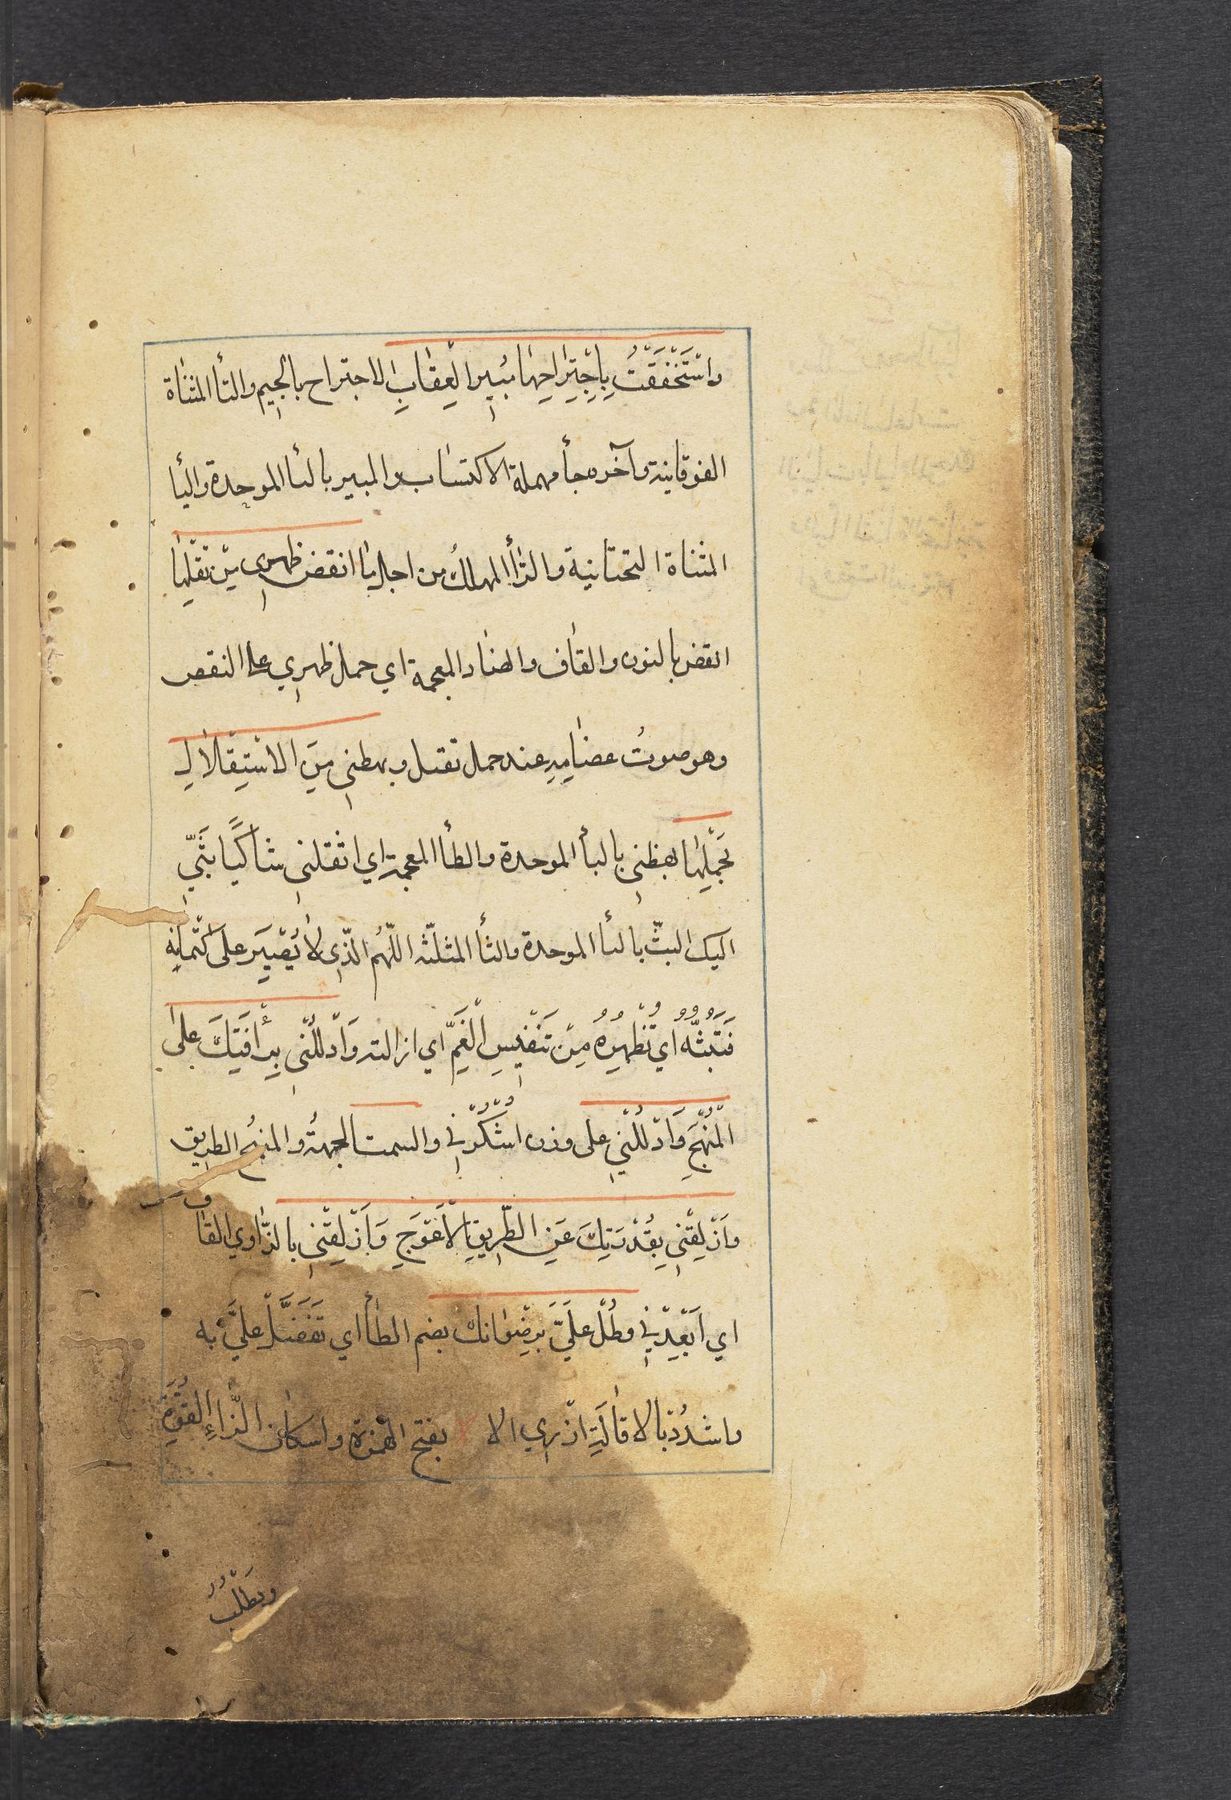 واسْتَحْقَقْتُ بِاجْتِراحِهَا مُبِيرَ الْعِقَابِ الاجتراح بالجيم والتأ المثناة
الفوقانية وآخره حأ مهملة الاكتساب والمبير بالبأ الموحدة واليأ
المثناة التحتانية والرأ المهلك من اجل ما انقض ظهري مِنْ ثقلِهَا
انقض بالنون والقاف والضاد المعجمة اي حمل ظهري على النقص
وهو صوتُ عند حمل ثقيل وبهظني مِنَ الاسْتِقْلالِ
بحَمْلِهَا بهظني بالبأ الموحدة والظأ المعجمة اي اثقلني شاكيًا بَثّي
اليك البثّ بالبأ الموحدة والثأ المثلّثه اللّهُم الّذي لا يُصْبَر على كتمانِه
فَتَبُثّهُ اي تُظهِرهُ مِنْ تَنْفِيسِ الْغَمِّ اي ازالته وَادْلُلْنِي بِرَأفَتِكَ على
الْمَنْهَجِ وَادْلُلْنِي على وزن اُشْكُرْني والسمت الجهةُ والمنهج الطريق
وَازْلِقْنِي بِقُدْرَتِكَ عَنِ الطّرِيقِ الأَعْوَجِ وَازْلِقْنِي بالزّاوي القا
ف
اي اَبْعِدْني وطُلْ عَلَيَّ بِرِضْوانك بضم الطأ اي تَفَضَّلْ علَيَّ به
واشدُدْ بالاقالَةِ ازري الا بفتح الهمزة واسكان الزّاءِ القُوَّة